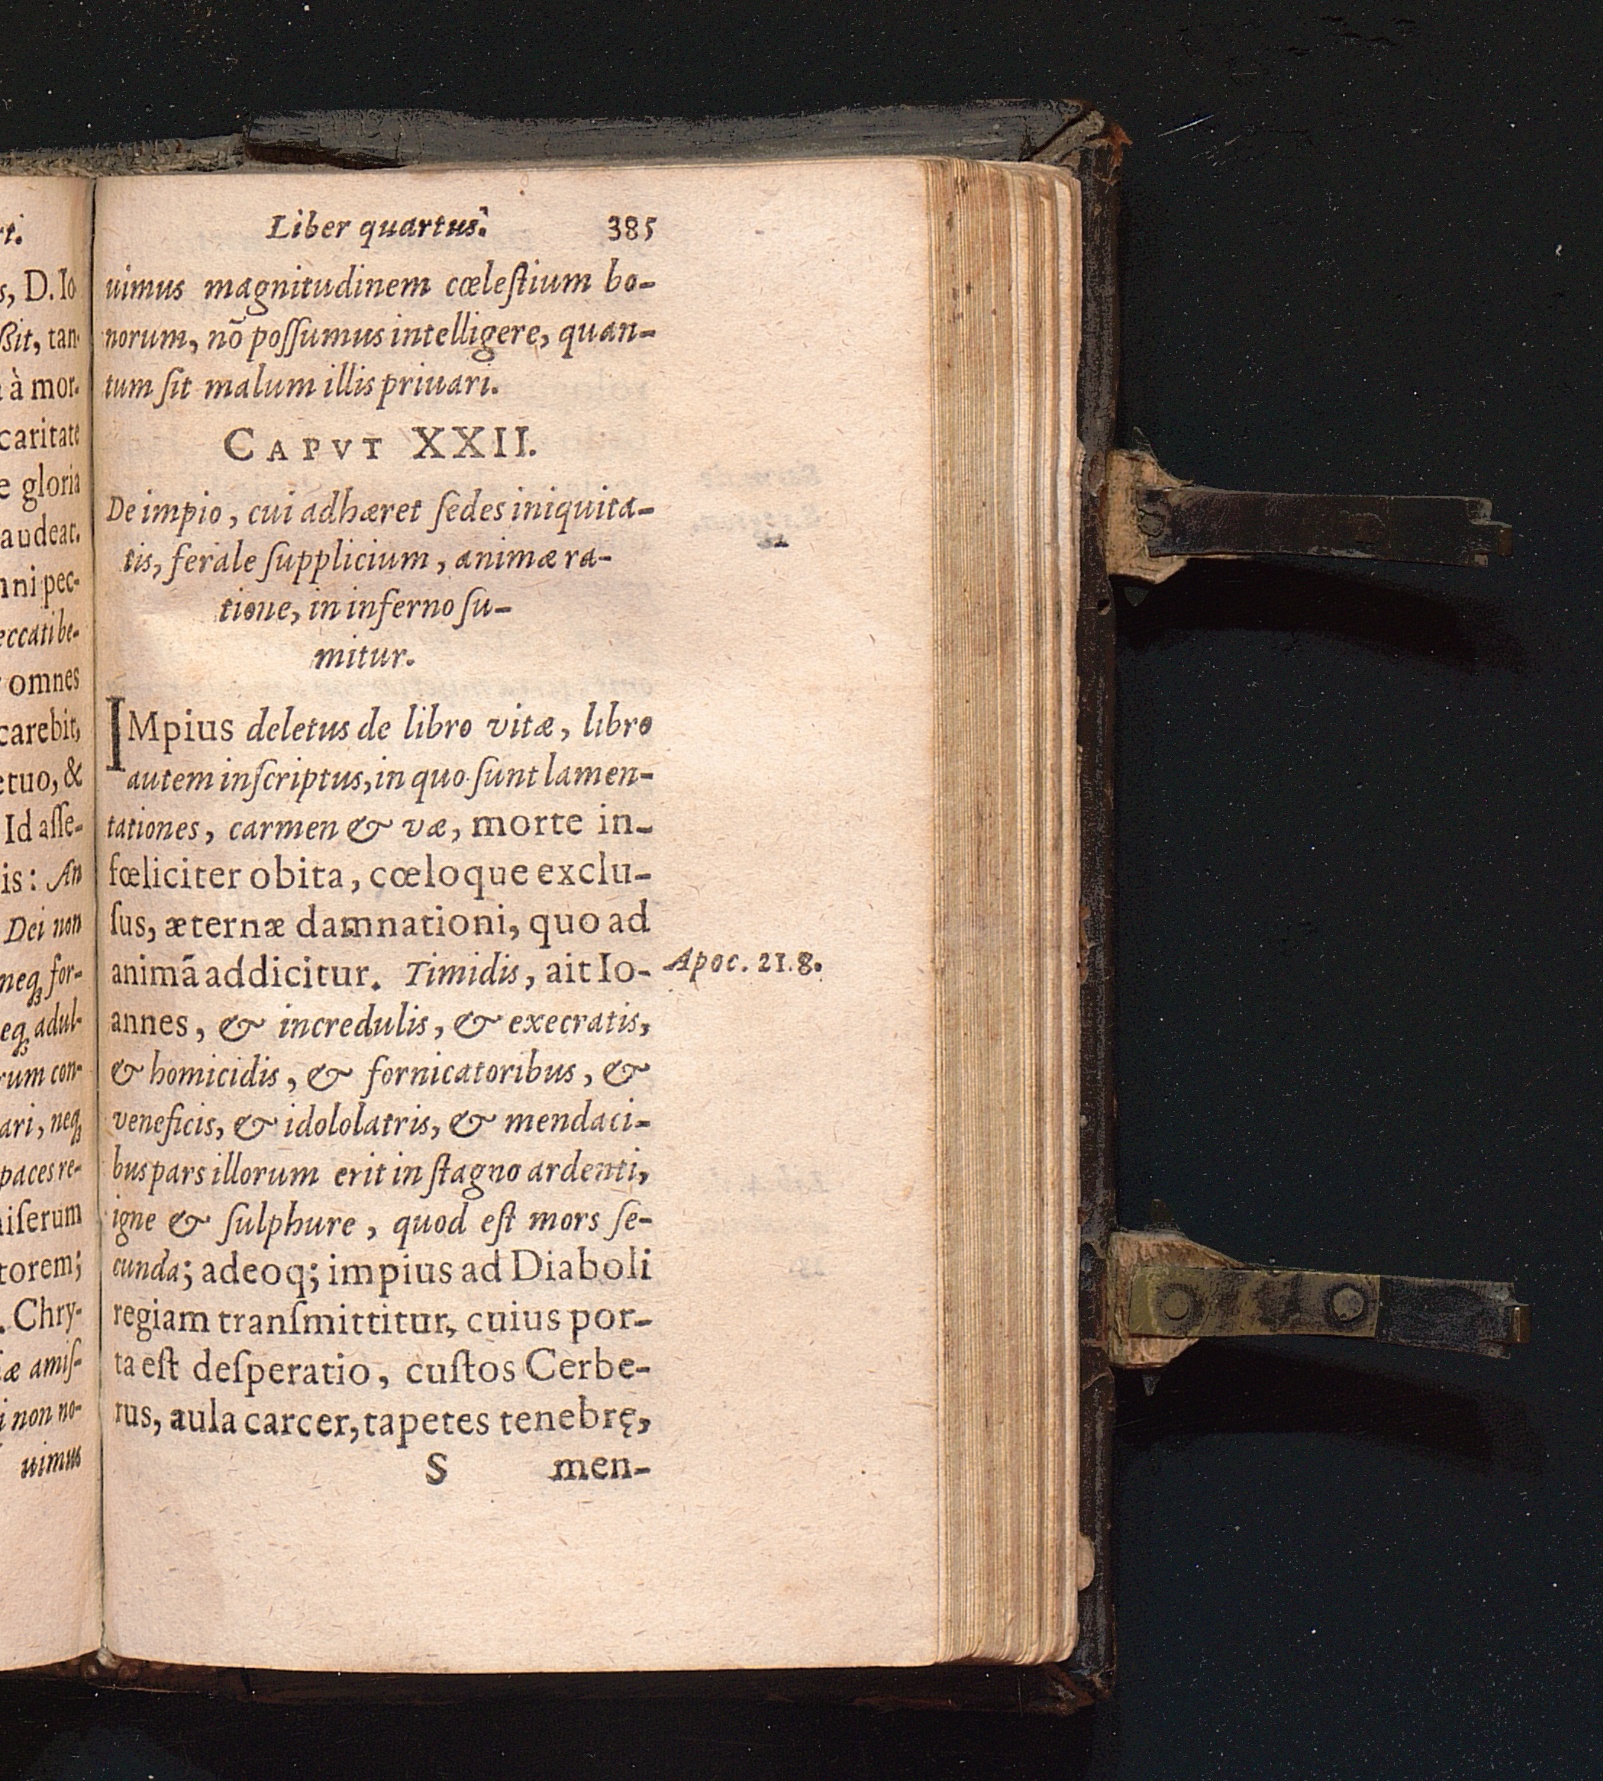 rt.
s, D. Io
ßit, tan-
à mor-
caritate
e gloria
audeat.
nni pec-
eccati be-
omnes
carebit,
etuo, &
Id aſſe-
is: An
Dei non
neq; for-
eq; adul-
rum con-
ari, neq;
paces re-
iſerum
torem;
. Chry-
æ amiſ-
i non no-
uimus
Liber quartus. 385
uimus magnitudinem cœleſtium bo-
norum, nō poſſumus intelligere, quan-
tum ſit malum illis priuari.
CAPVT XXII.
De impio, cui adhæret ſedes iniquita-
tis, ferale ſupplicium, animæ ra-
tione, in inferno ſu-
mitur.
IMpius deletus de libro vitæ, libro
autem inſcriptus, in quo ſunt lamen-
tationes, carmen & væ, morte in-
fœliciter obita, cœloque exclu-
ſus, æternæ damnationi, quo ad
animā addicitur. Timidis, ait Io-
Apoc. 21.8.
annes, & incredulis, & execratis,
& homicidis, & fornicatoribus, &
veneficis, & idololatris, & mendaci-
bus pars illorum erit in ſtagno ardenti,
igne & ſulphure, quod eſt mors ſe-
cunda; adeoq; impius ad Diaboli
regiam tranſmittitur, cuius por-
ta eſt deſperatio, cuſtos Cerbe-
rus, aula carcer, tapetes tenebrę,
S men-